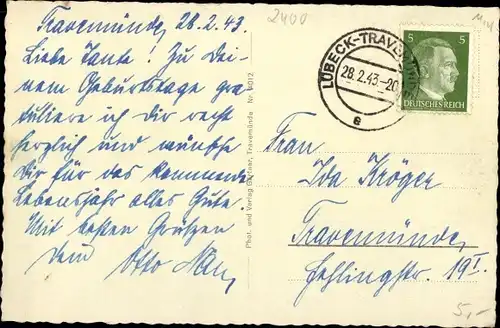 Travemünde, 28.2.43.
Liebe Tante! Zu Dei-
nem Geburtstage gra-
tuliere ich dir recht
herzlich und wünsche
Dir für das kommende
Lebensjahr alles Gute.
Mit besten Grüßen
Otto
Phot. und Verlag Travemünde Nr. 4012
2400
LÜBECK-TRAVEMÜNDE
28.2.43.-20
a
5 5
DEUTSCHES REICH
Frau
Ida Kröger
Travemünde,
Fehlingstr. 19 I.
5,-